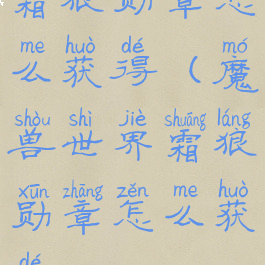 霜狼勋章怎
me huò dé mó
么获得（魔
shòu shì jiè shuāng láng
兽世界霜狼
xūn zhāng zěn me huò
勋章怎么获
dé